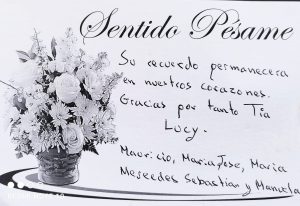 Sentido Pésame
Su recuerdo permanecera
en nuestros corazones.
Gracias por tanto Tia
Lucy.
Mauricio, Maria Jose, Maria
Mercedes Sebastian y Manuela